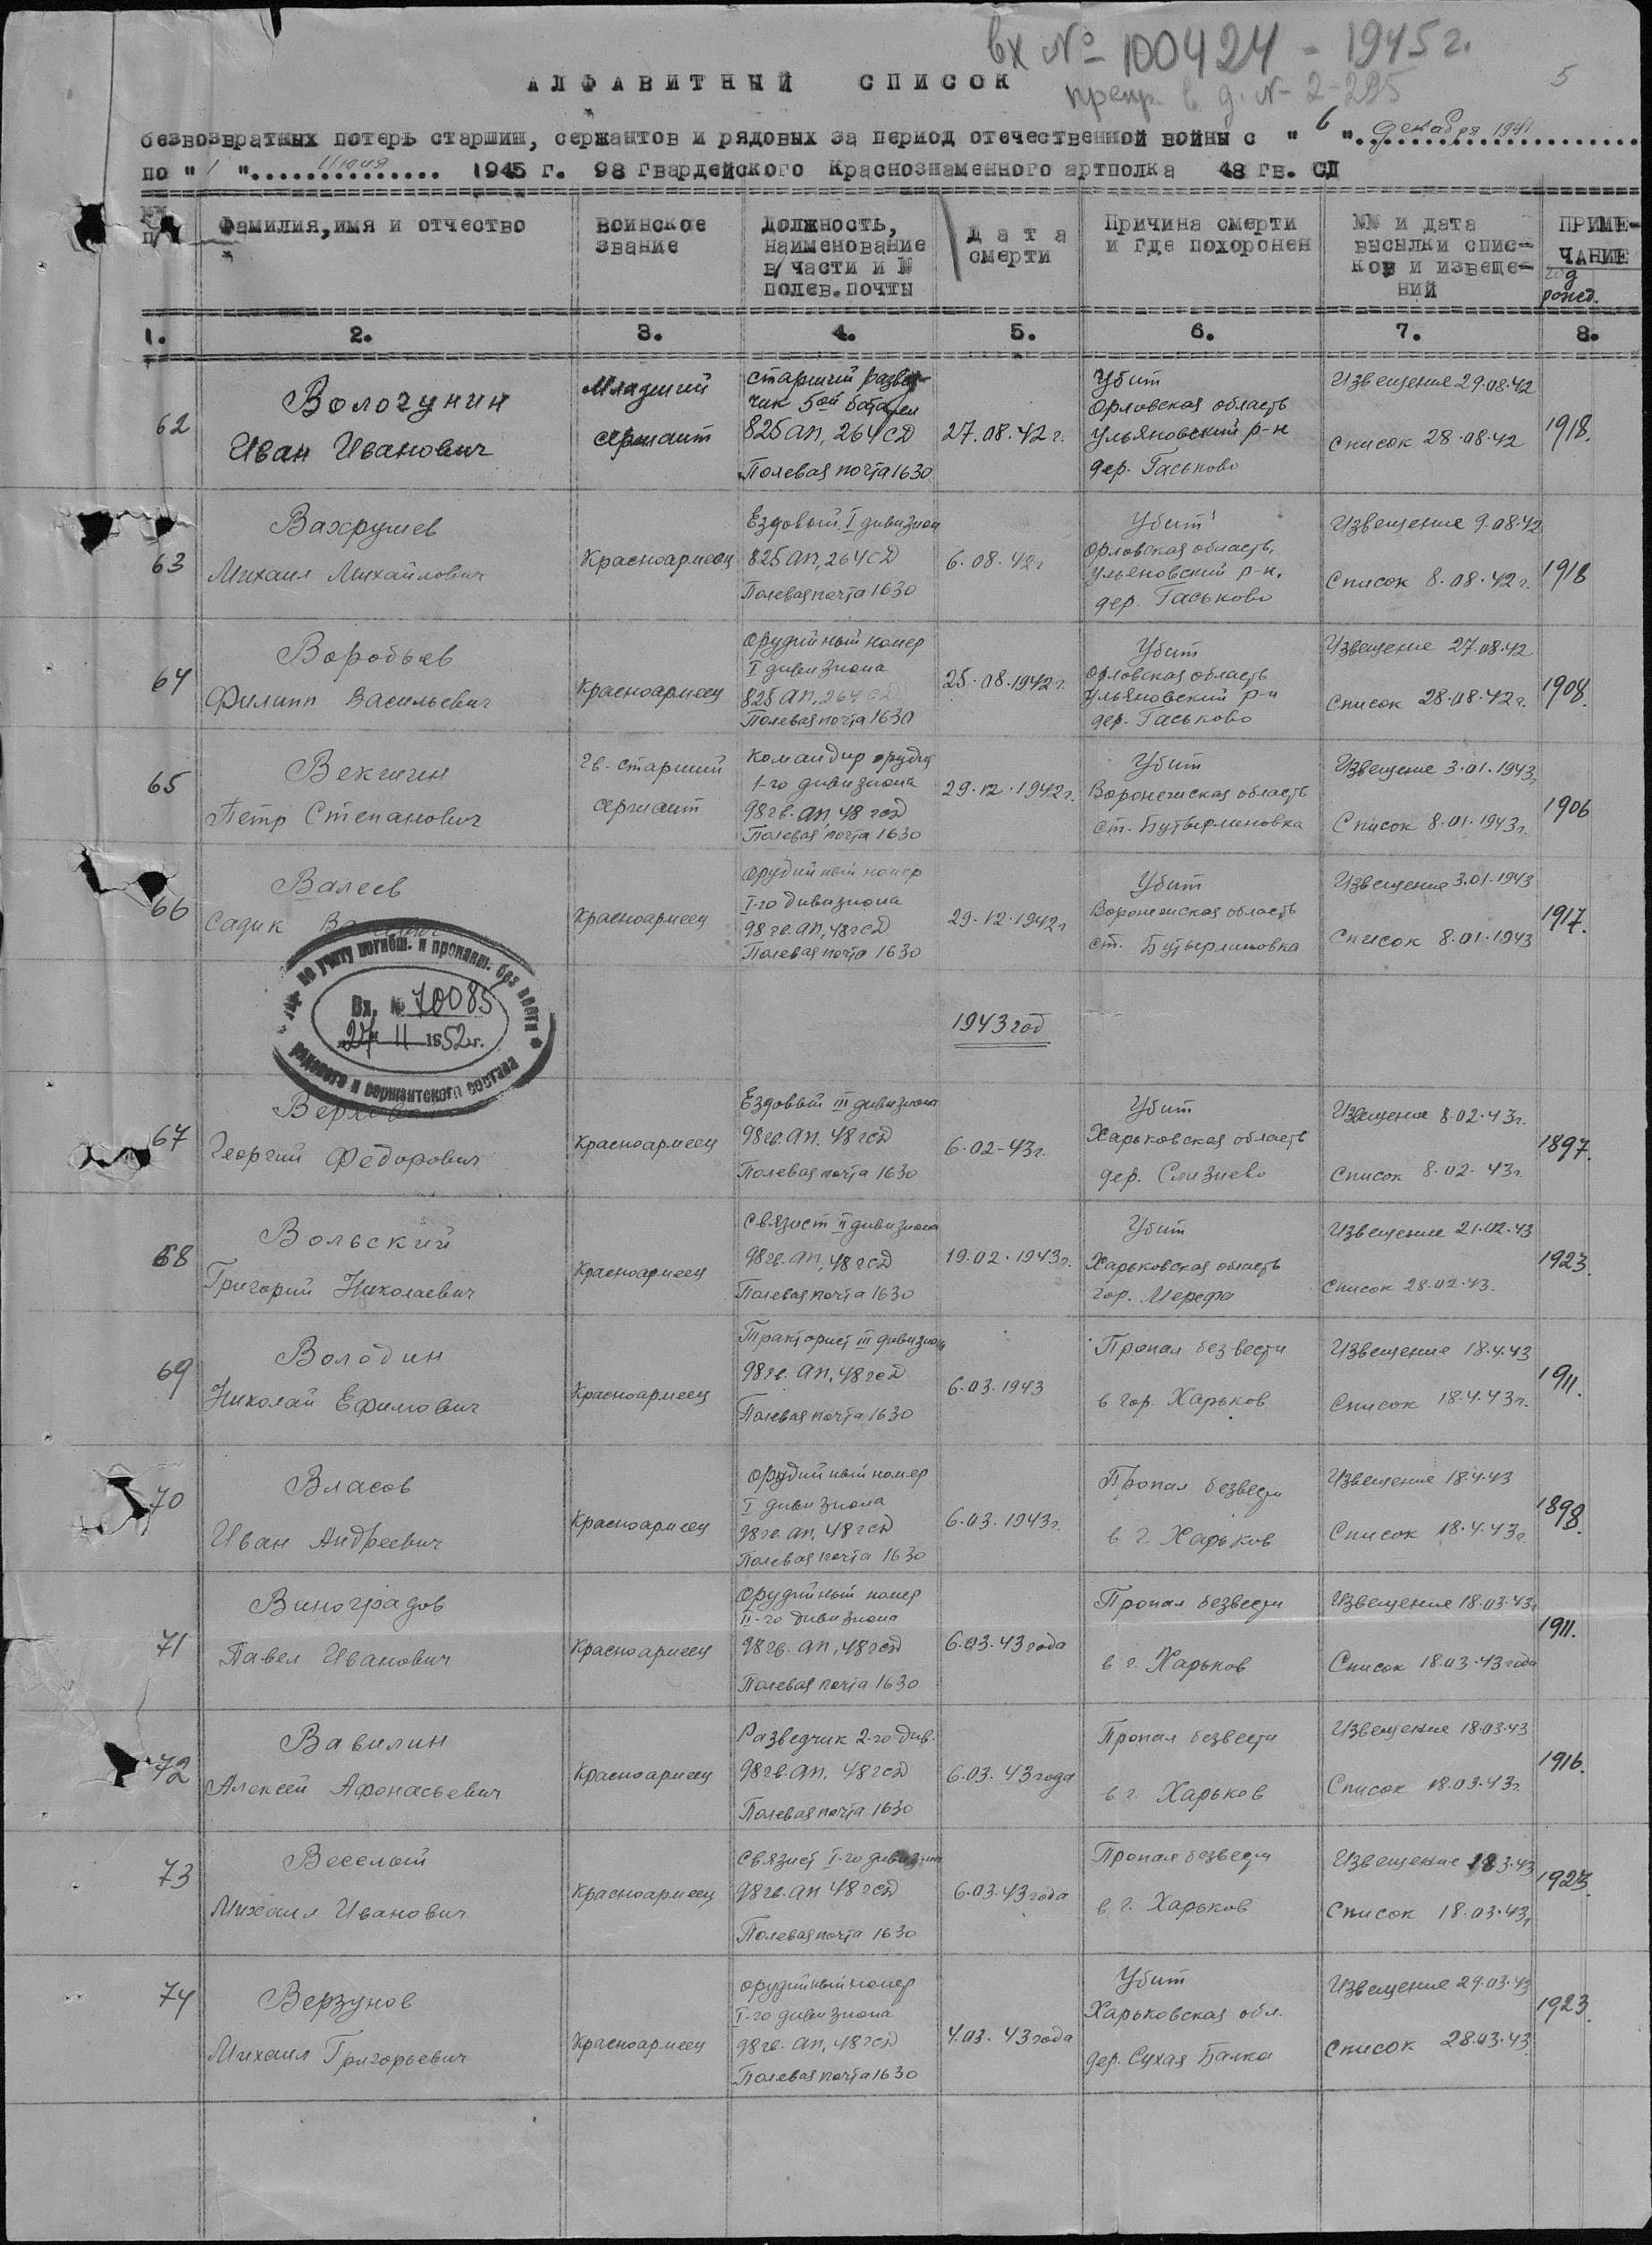 вх № 100424 - 1945 г.
5
АЛФАВИТНЫЙ СПИСОК
в д. № 2-295
безвозвратных потерь старшин, сержантов и рядовых за период отечественной войны с "6" декабря 1941
по "1" 1945 г. 98 гвардейского Краснознаменного артполка 48 гв. СД
№№ п/п
Фамилия, имя и отчество
Воинское звание
Должность, наименование в/части и № полев. почты
Дата смерти
Причина смерти и где похоронен
№№ и дата высылки списков и извещений
ПРИМЕЧАНИЕ
год рожд.
1. 2. 3. 4. 5. 6. 7. 8.
62
Вологунин
Иван Иванович
Младший
сержант
старший развед-
чик 5ой батареи
825 ап, 264 сд
Полевая почта 1630
27.08.42 г.
Убит
Орловская область
Ульяновский р-н
дер. Гаськово
Извещение 29.08.42
Список 28.08.42
1918.
63
Вахрушев
Михаил Михайлович
Красноармеец
Ездовой I дивизион
825 ап, 264 сд
Полевая почта 1630
6.08.42 г
Убит
Орловская область,
Ульяновский р-н.
дер. Гаськово
Извещение 9.08.42
Список 8.08.42 г.
1918
64
Воробьев
Филипп Васильевич
Красноармеец
орудийный номер
I дивизиона
825 ап, 264 сд
Полевая почта 1630
25.08.1942 г.
Убит
Орловская область
Ульяновский р-н
дер. Гаськово
Извещение 27.08.42
Список 28.08.42 г.
1908.
65
Векшин
Петр Степанович
Гв. старший
сержант
Командир орудия
1-го дивизиона
98 гв. ап, 48 гсд
Полевая почта 1630
29.12.1942 г.
Убит
Воронежская область
ст. Бутырлиновка
Извещение 3.01.1943
Список 8.01.1943 г.
1906
66
Валеев
Садик
Красноармеец
орудийный номер
I-го дивизиона
98 гв. ап, 48 гсд
Полевая почта 1630
29.12.1942 г
Убит
Воронежская область
ст. Бутырлиновка
Извещение 3.01.1943
Список 8.01.1943
1917.
по учету погибш. и пропавш. без вести
рядового и сержантского состава
Вх. № 70085
"27" 11 1952 г.
1943 год
67
Георгий Федорович
Красноармеец
Ездовый III дивизиона
98 гв. ап. 48 гсд
Полевая почта 1630
6.02-43 г.
Убит
Харьковская область
дер. Слизнево
Извещение 8.02.43 г.
Список 8.02.43 г.
1897.
68
Вольский
Григорий Николаевич
Красноармеец
Связист II дивизиона
98 гв. ап, 48 гсд
Полевая почта 1630
19.02.1943 г.
Убит
Харьковская область
гор. Мерефа
Извещение 21.02.43
Список 28.02.43.
1923.
69
Володин
Николай Ефимович
Красноармеец
Тракторист III дивизион
98 гв. ап, 48 гсд
Полевая почта 1630
6.03.1943
Пропал без вести
в гор. Харьков
Извещение 18.4.43
Список 18.4.43 г.
1911.
70
Власов
Иван Андреевич
Красноармеец
орудийный номер
I дивизиона
98 гв. ап, 48 гсд
Полевая почта 1630
6.03.1943 г.
Пропал безвести
в г. Харьков
Извещение 18.4.43
Список 18.4.43 г.
1898.
71
Виноградов
Павел Иванович
Красноармеец
Орудийный номер
II-го дивизиона
98 гв. ап, 48 гсд
Полевая почта 1630
6.03.43 года
Пропал безвести
в г. Харьков
Извещение 18.03.43
Список 18.03.43 года
1911.
72
Вавилин
Алексей Афонасьевич
Красноармеец
Разведчик 2-го див.
98 гв. ап, 48 гсд
Полевая почта 1630
6.03.43 года
Пропал безвести
в г. Харьков
Извещение 18.03.43
Список 18.03.43 г.
1916.
73
Веселый
Михаил Иванович
Красноармеец
Связист I-го дивизиона
98 гв. ап 48 гсд
Полевая почта 1630
6.03.43 года
Пропал безвести
в г. Харьков
Извещение 18.3.43
Список 18.03.43
1923.
74
Верзунов
Михаил Григорьевич
Красноармеец
орудийный номер
I-го дивизиона
98 гв. ап, 48 гсд
Полевая почта 1630
4.03.43 года
Убит
Харьковская обл.
дер. Сухая Балка
Извещение 29.03.43
Список 28.03.43
1923